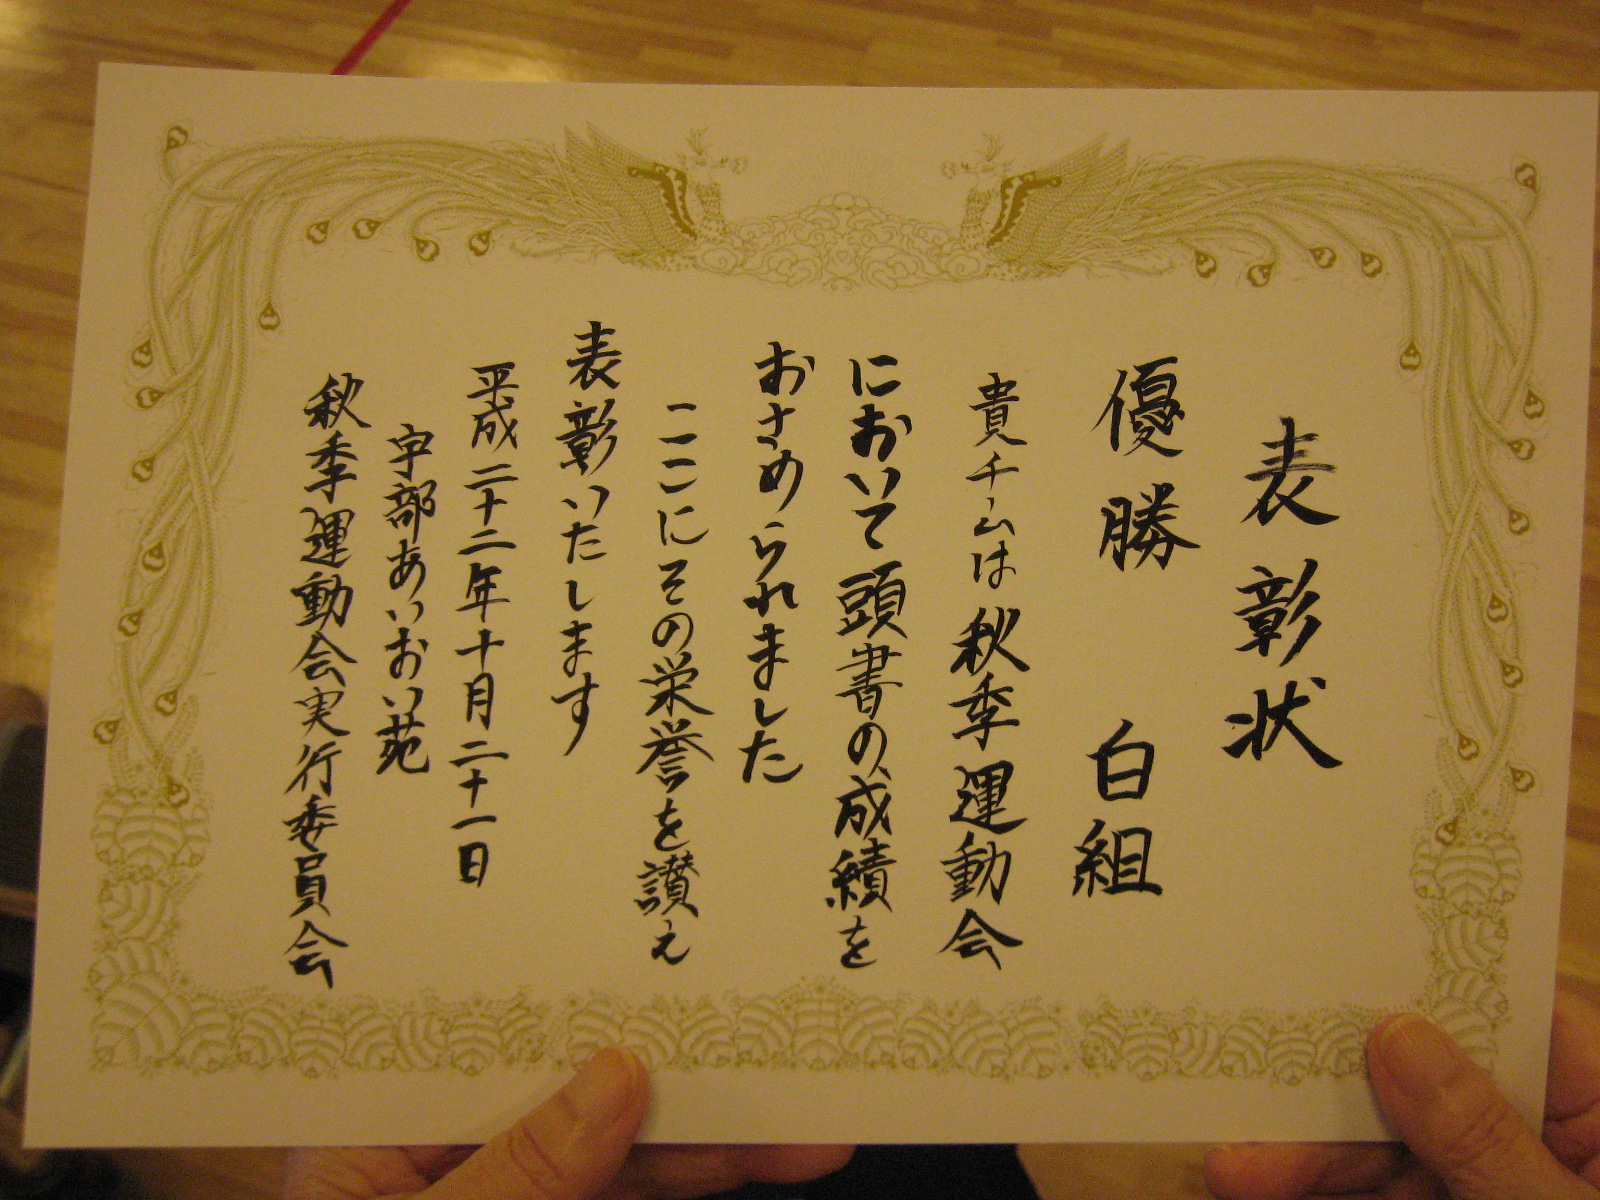 表彰状
優勝 白組
貴チームは秋季運動会
において頭書の成績を
おさめられました
ここにその栄誉を讃え
表彰いたします
平成二十二年十月二十一日
宇部あいおい苑
秋季運動会実行委員会